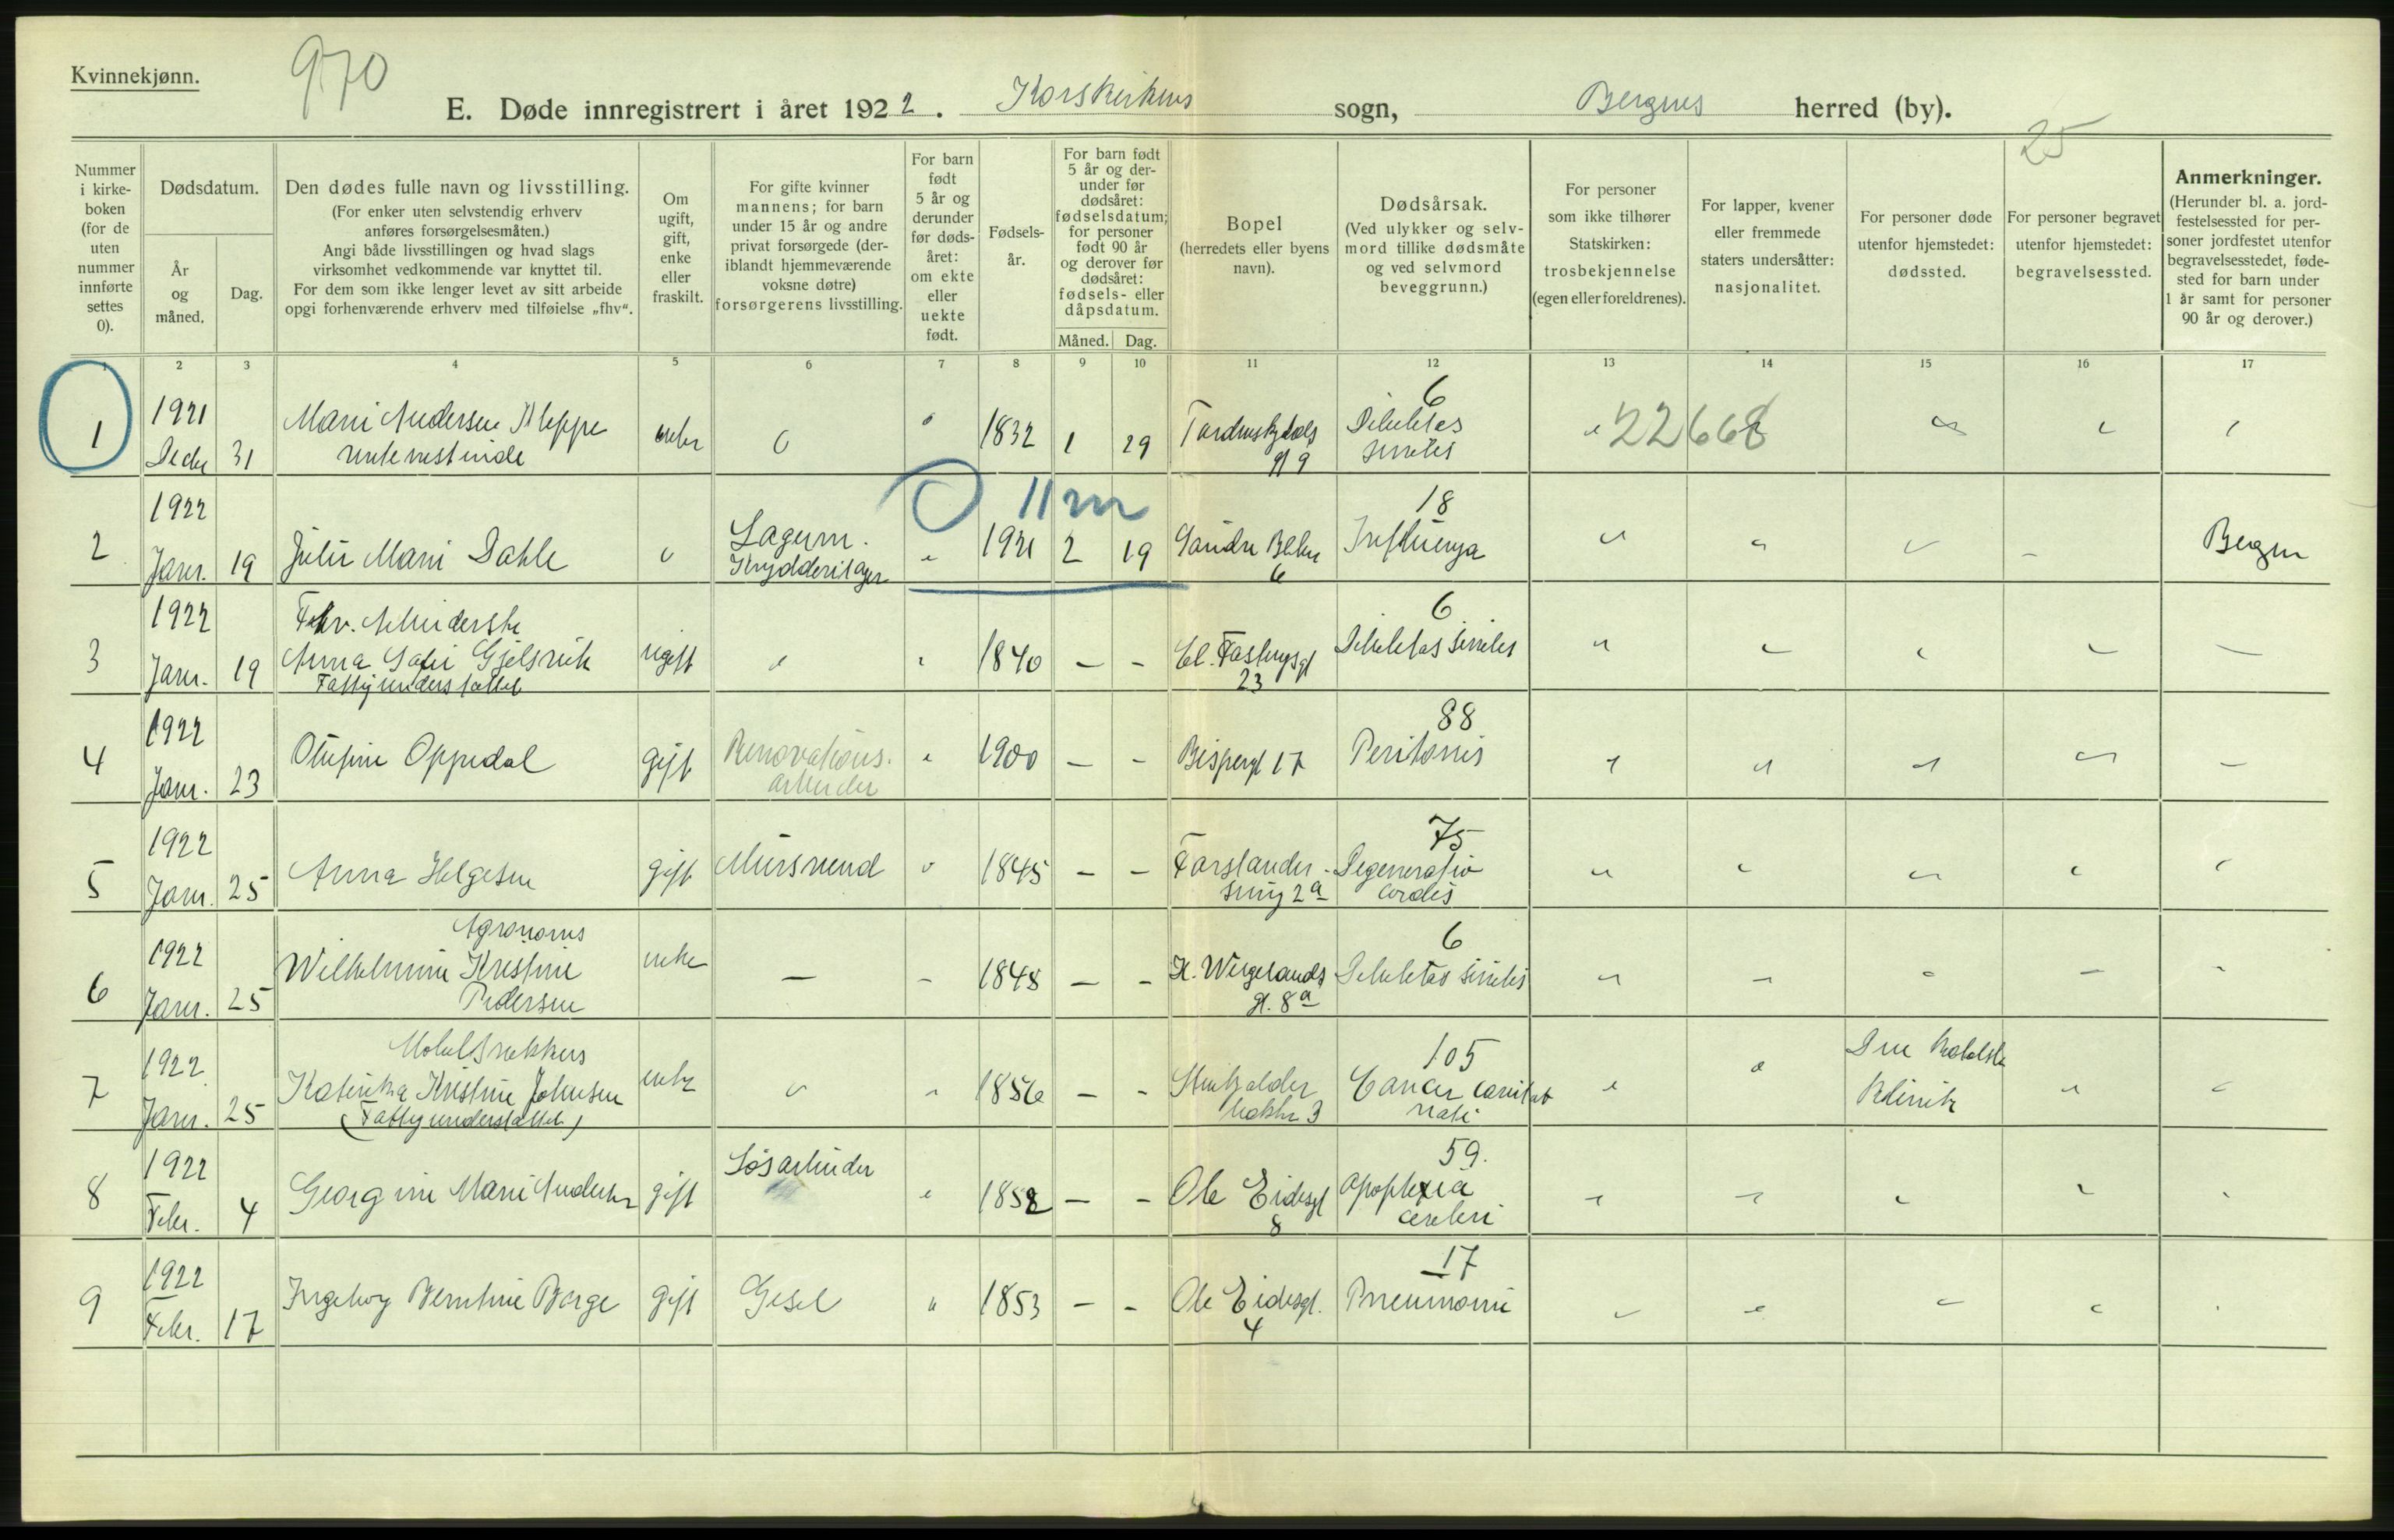 Kvinnekjønn.
970
E. Døde innregistrert i året 1922. Korskirkens sogn, Bergens herred (by).
25
Nummer i kirkeboken (for de uten nummer innførte settes 0).
Dødsdatum.
År og måned.
Dag.
Den dødes fulle navn og livsstilling.
(For enker uten selvstendig erhverv anføres forsørgelsesmåten.)
Angi både livsstillingen og hvad slags virksomhet vedkommende var knyttet til.
For dem som ikke lenger levet av sitt arbeide opgi forhenværende erhverv med tilføielse „fhv“.
Om ugift, gift, enke eller fraskilt.
For gifte kvinner mannens; for barn under 15 år og andre privat forsørgede (deriblandt hjemmeværende voksne døtre) forsørgerens livsstilling.
For barn født 5 år og derunder før dødsåret: om ekte eller uekte født.
Fødselsår.
For barn født 5 år og derunder før dødsåret: fødselsdatum; for personer født 90 år og derover før dødsåret: fødsels- eller dåpsdatum.
Måned.
Dag.
Bopel
(herredets eller byens navn).
Dødsårsak.
(Ved ulykker og selvmord tillike dødsmåte og ved selvmord beveggrunn.)
For personer som ikke tilhører Statskirken: trosbekjennelse (egen eller foreldrenes).
For lapper, kvener eller fremmede staters undersåtter: nasjonalitet.
For personer døde utenfor hjemstedet: dødssted.
For personer begravet utenfor hjemstedet: begravelsessted.
Anmerkninger.
(Herunder bl. a. jordfestelsessted for personer jordfestet utenfor begravelsesstedet, fødested for barn under 1 år samt for personer 90 år og derover.)
1 2 3 4 5 6 7 8 9 10 11 12 13 14 15 16 17
1 1921 31 Marie Andersen Kleppe enke 1832 1 29 6
22668
2 1922 Janr. 19 Julie Marie Dahle Lagerm. Krydderilager 11 m 1921 2 19 Søndre 6 18 Influenza Bergen
3 1922 Janr. 19 Fhv. Arbeiderske
Anna Gjelsvik ugift 1840 — - 23 6 Debilitas senilis
Fattigunderstøttet
4 1922 Janr. 23 Oppedal gift Renovations-
arbeider 1900 — - Bispengt 17 88
5 1922 Janr. 25 Anna Helgesen gift Mursvend 1845 — - 2a 75 Degeneratio
cordis
6 1922 Janr. 25 Agronoms
Wilhelmine Kristine
Pedersen enke — - 1848 — - H. Wergelands
gt. 8a 6 Debilitas senilis
7 1922 Janr. 25
Kristine Johnsen enke 1856 — - 3 105 Cancer
(Fattigunderstøttet) Klinik
8 1922 Febr. 4 Georgine Marie gift Løsarbeider 1852 — - Ole Eidesgt
8 59. Apoplexia
cerebri
9 1922 Febr. 17 Ingeborg Berntine Borge gift Gesel 1853 — - Ole Eidesgt.
4 17 Pneumoni